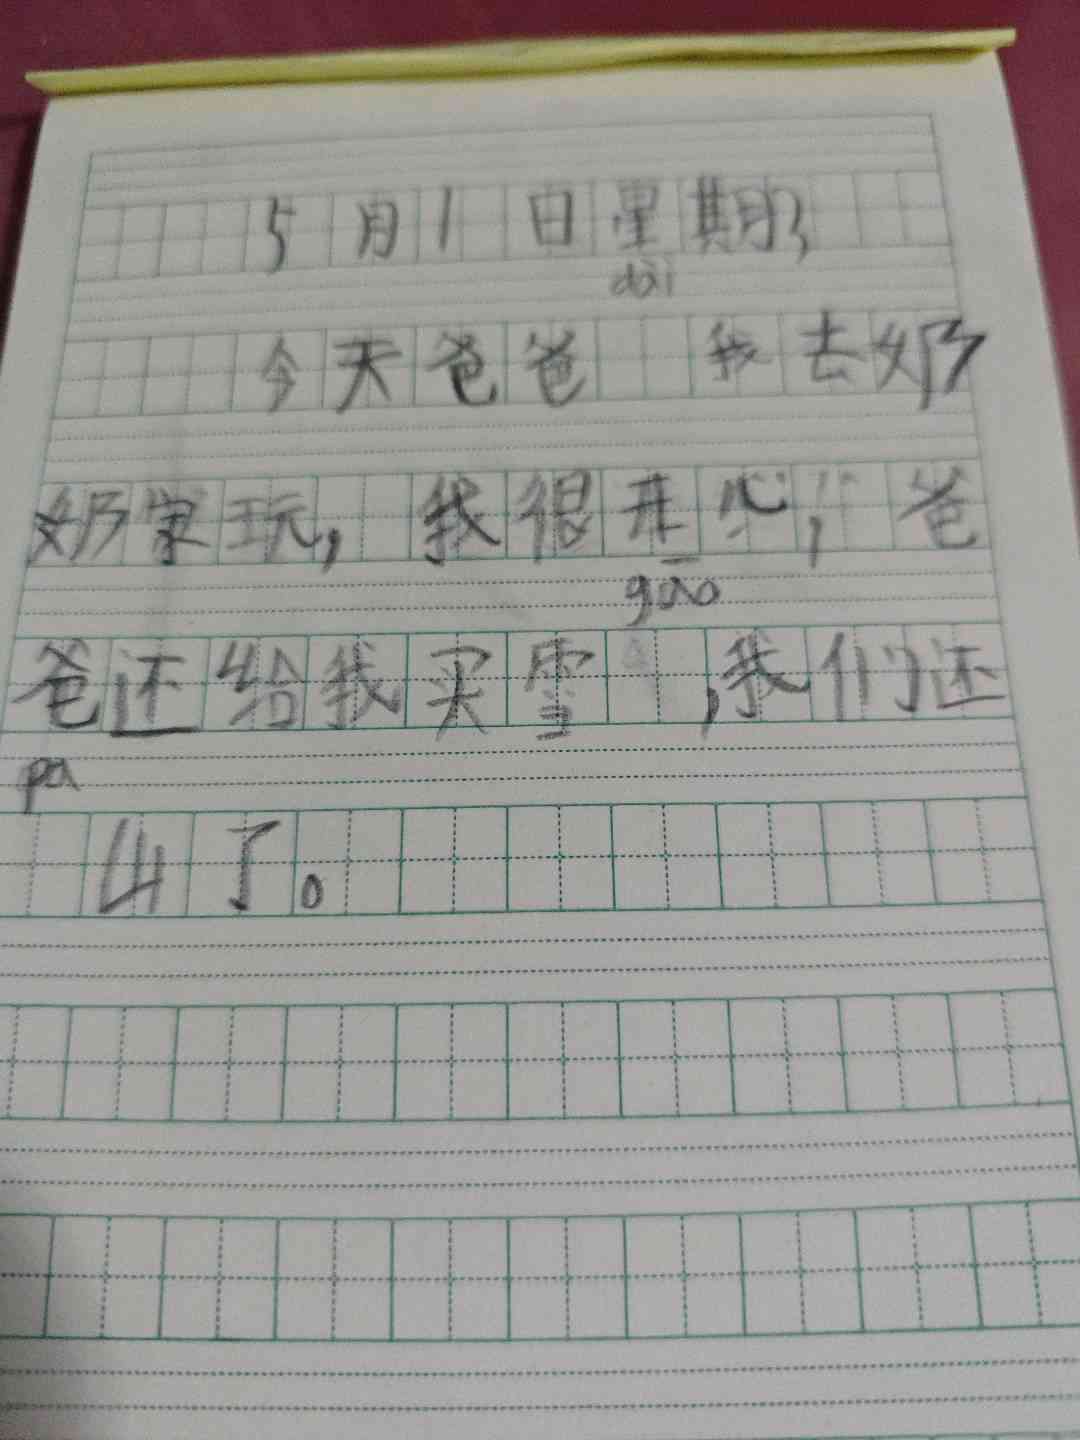 5月1日星期3
dài
今天爸爸 我去奶
奶家玩，我很开心，爸
gāo
爸还给我买雪 ，我们还
pa
山了。